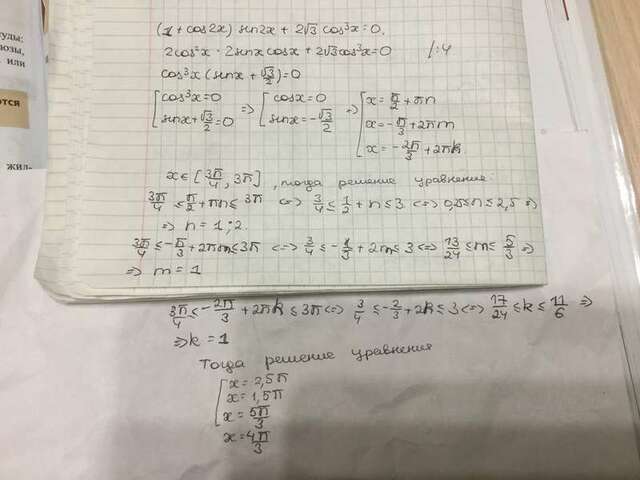 туды:
или
жил-
(1 + cos2x) sin2x + 2√3 cos³x = 0.
2cos²x · 2sinx cosx + 2√3 cos³x = 0 /:4
cos³x (sinx + √3/2) = 0
[cos³x = 0 => [cosx = 0 => [x = π/2 + πn
[sinx + √3/2 = 0 [sinx = -√3/2 [x = -π/3 + 2πm
[x = -2π/3 + 2πk.
x ∈ [3π/4, 3π], тогда решение уравнение:
3π/4 ≤ π/2 + πn ≤ 3π <=> 3/4 ≤ 1/2 + n ≤ 3 <=> 0,25 ≤ n ≤ 2,5 =>
=> n = 1; 2.
3π/4 ≤ -π/3 + 2πm ≤ 3π <=> 3/4 ≤ -1/3 + 2m ≤ 3 <=> 13/24 ≤ m ≤ 5/3 =>
=> m = 1
3π/4 ≤ -2π/3 + 2πk ≤ 3π <=> 3/4 ≤ -2/3 + 2k ≤ 3 <=> 17/24 ≤ k ≤ 11/6 =>
=> k = 1
Тогда решение уравнения
[x = 2,5π
[x = 1,5π
[x = 5π/3
x = 4π/3